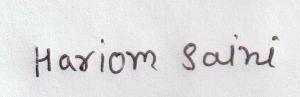 Hariom Saini